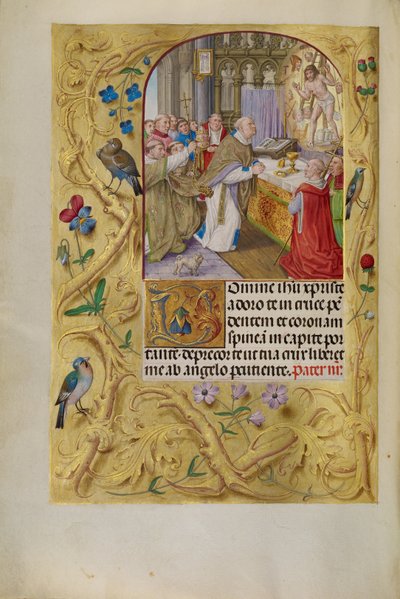 Domine ihũ xpriste
adoro te in cruce pẽ
dentem et coronam
spineã in capite por
tantẽ. deprecor te ut tua crux liberet
me ab angelo paciente. Pater nr̃.